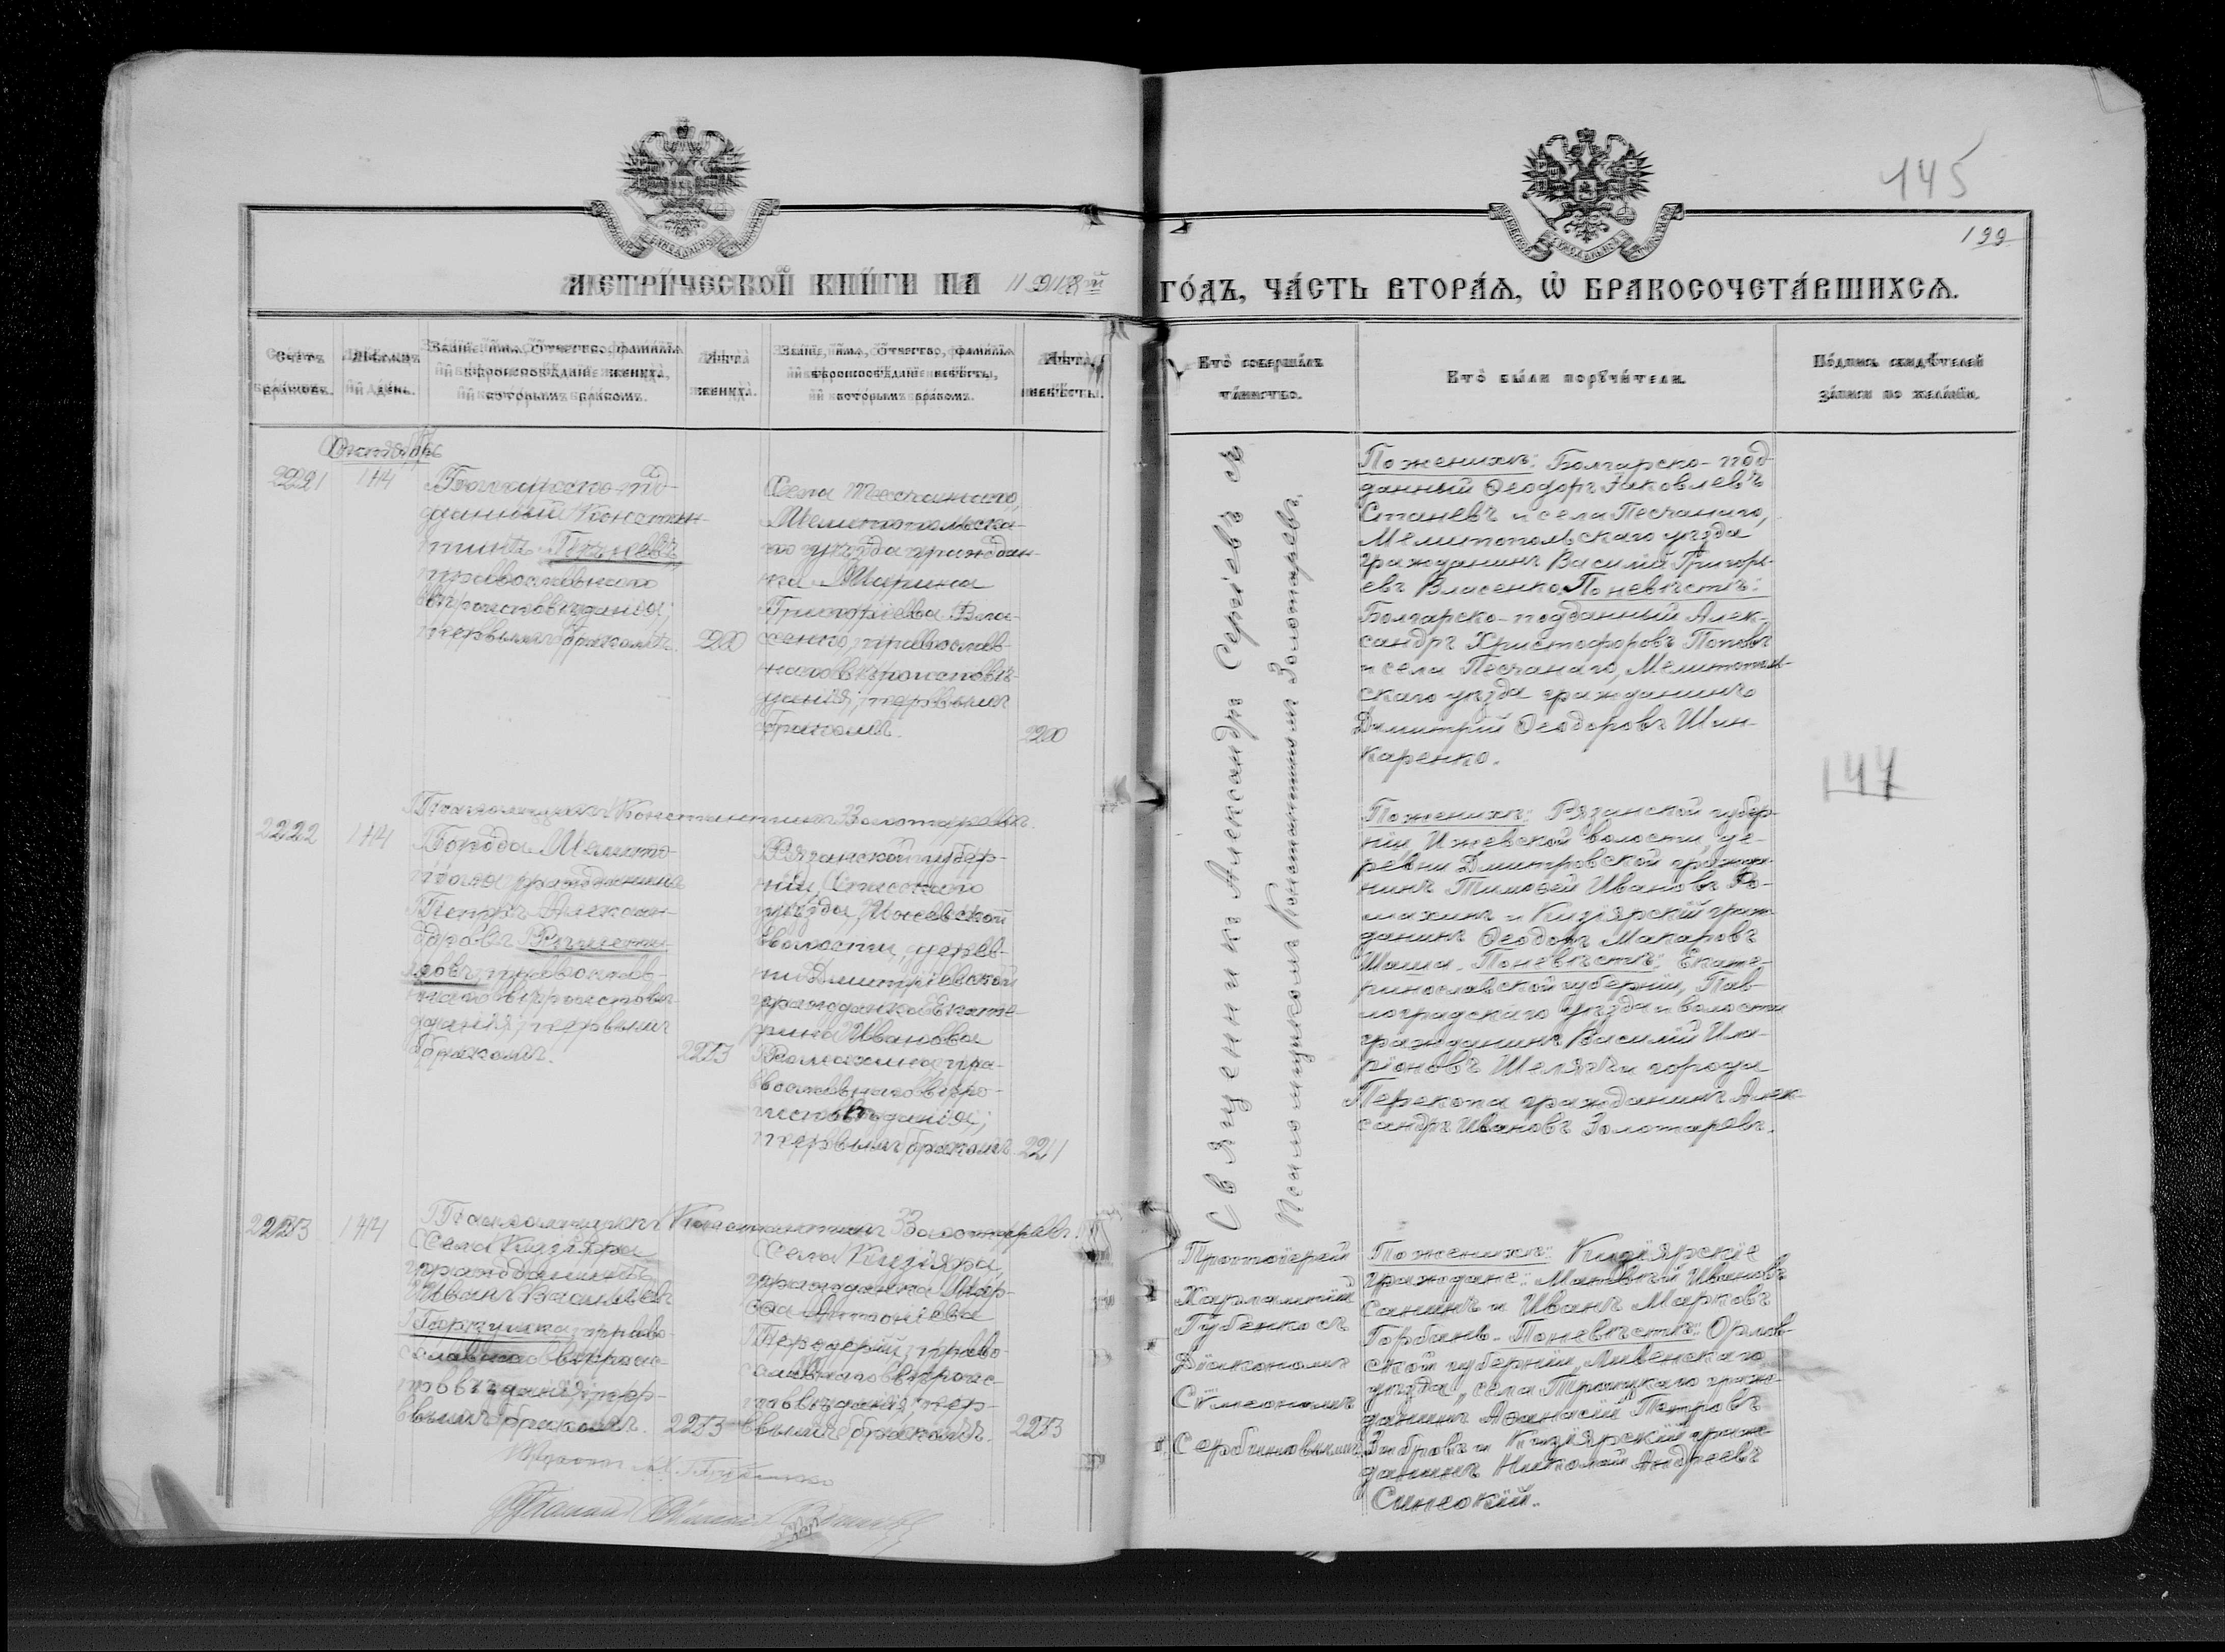 145
199
МЕТРИЧЕСКОЙ КНИГИ НА 1918й ГОДЪ, ЧАСТЬ ВТОРАЯ, Ѡ БРАКОСОЧЕТАВШИХСЯ.
Счетъ браковъ.
Мѣсяцъ и день.
Званіе, имя, отчество, фамилія и вѣроисповѣданіе жениха, и которымъ бракомъ.
Лѣта жениха.
Званіе, имя, отчество, фамилія и вѣроисповѣданіе невѣсты, и которымъ бракомъ.
Лѣта невѣсты.
Кто совершалъ таинство.
Кто были поручители.
Подпись свидѣтелей записи по желанію.
Октябрь
221
14
Болгарско-под-
данный Констан-
тинъ
православнаго
вѣроисповѣданія;
первымъ бракомъ.
20
Села Песчанаго,
Мелитопольска-
го уѣзда граждан-
ка Марина
Григоріева Вла-
сенко, православ-
наго вѣроисповѣ-
данія; первымъ
бракомъ.
20
Священникъ Александръ Сергіевъ съ
Псаломщикомъ Константиномъ Золотаревъ.
По женихѣ: Болгарско-под-
данный Ѳеодоръ Іаковлевъ
Станевъ и села Песчанаго,
Мелитопольскаго уѣзда
гражданинъ Василій Григорі-
евъ Власенко. По невѣстѣ:
Болгарско-подданный Алек-
сандръ Христофоровъ Поповъ
и села Песчанаго, Мелитополь-
скаго уѣзда гражданинъ
Димитрій Ѳеодоровъ Шин-
каренко.
147
Псаломщикъ Константинъ Золотаревъ.
222
14
Города Мелито-
поля гражданинъ
Петръ Алексан-
дровъ
православ-
наго вѣроисповѣ-
данія; первымъ
бракомъ.
23
Рязанской губер-
ніи, Спасскаго
уѣзда, Ижевской
волости, дерев-
ни Дмитріевской
гражданка Екате-
рина Иванова
Ромахина, пра-
вославнаго вѣро-
исповѣданія;
первымъ бракомъ.
21
По женихѣ: Рязанской губер-
ніи, Ижевской волости, де-
ревни Дмитровской гражда-
нинъ Тимоѳей Ивановъ Ро-
махинъ и Кизіярскій граж-
данинъ Ѳеодоръ Макаровъ
Шаша. По невѣстѣ: Екате-
ринославской губерніи, Пав-
лоградскаго уѣзда и волости
гражданинъ Василій Ила-
ріоновъ Шелягъ и города
Перекопа гражданинъ Алек-
сандръ Ивановъ Золотаревъ.
Псаломщикъ Константинъ Золотаревъ.
223
14
Села Кизіяра
гражданинъ
Иванъ Васильевъ
право-
славнаго вѣроис-
повѣданія; пер-
вымъ бракомъ.
23
Села Кизіяра,
гражданка Мар-
ѳа Антоніева
право-
славнаго вѣроис-
повѣданія; пер-
вымъ бракомъ.
23
Протоіерей
Харлампій
Губенко съ
Діакономъ
Сѵмеономъ
Сербиновымъ.
По женихѣ: Кизіярскіе
граждане: Матѳей Ивановъ
Санинъ и Иванъ Марковъ
Горбань. По невѣстѣ: Орлов-
ской губерніи, Ливенскаго
уѣзда, села Троицкаго граж-
данинъ Аѳанасій Петровъ
Зибровъ и Кизіярскій граж-
данинъ Николай Андреевъ
Синеокій.